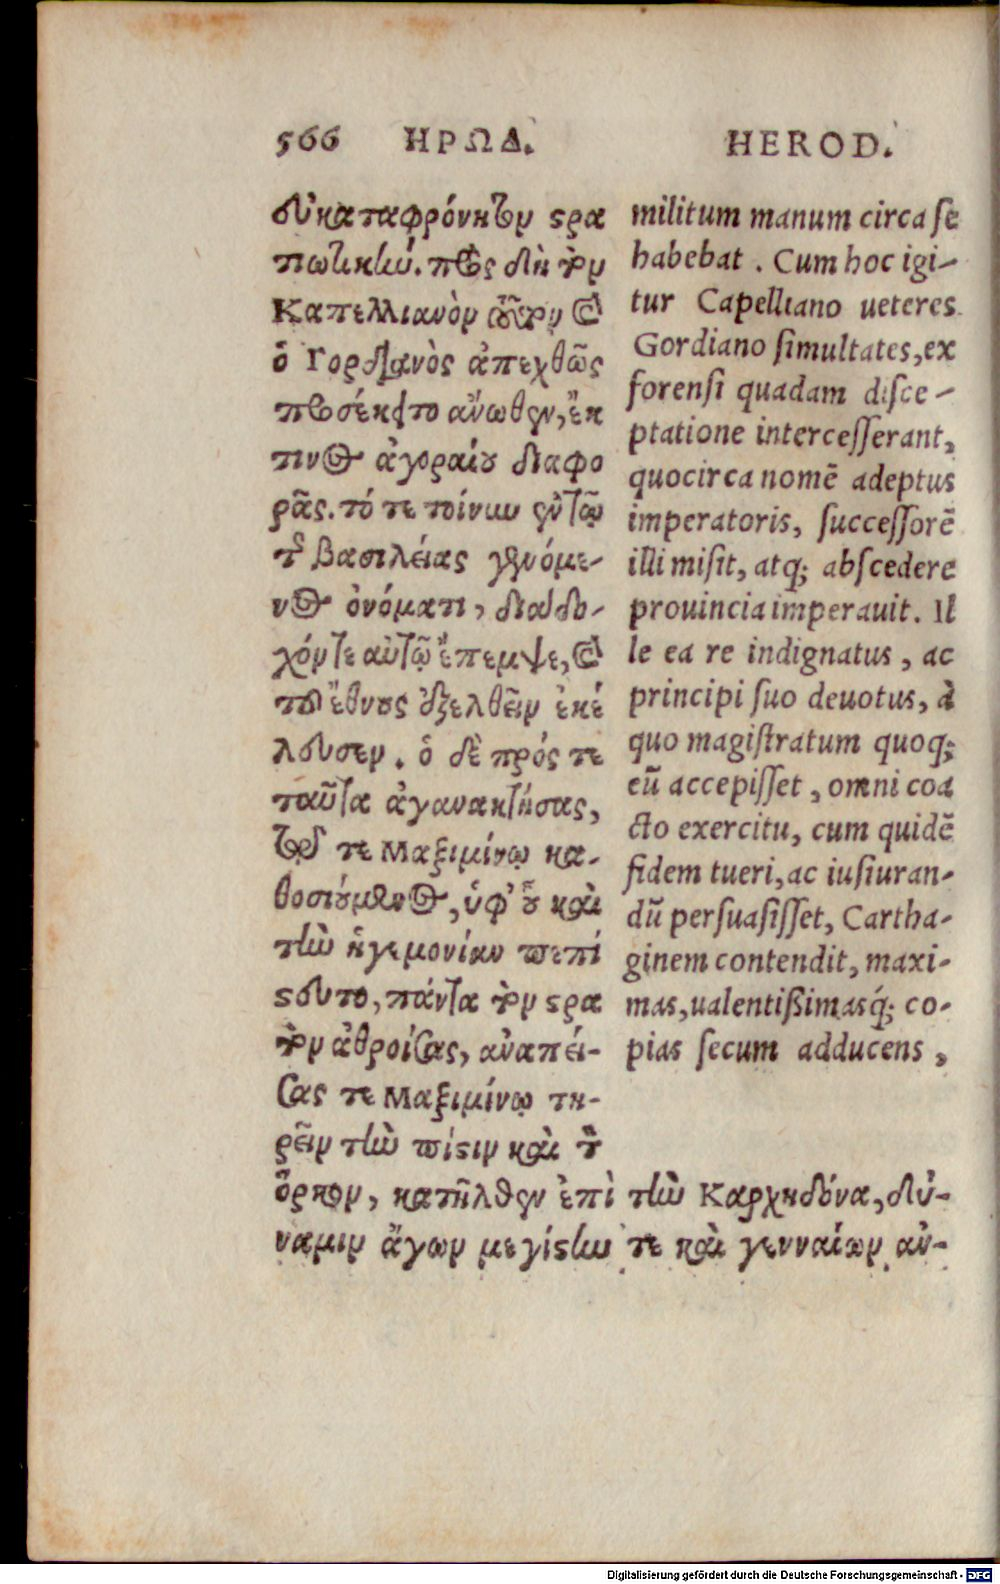 566 ΗΡΩΔ.
δυκαταφρόνητον στρα
τιωτικήν. πρὸς δὴ τὸν
Καπελλιανὸν τοῦτον καὶ
ὁ Γορδιανὸς ἀπεχθῶς
προσέκειτο ἄνωθεν, ἔκ
τινος ἀγοραίου διαφο
ρᾶς. τό τε τοίνυν ἐν τῷ
τῆς βασιλείας γενόμε-
νος ὀνόματι, διαδο-
χόν τε αὐτῷ ἔπεμψε, καὶ
τοῦ ἔθνους ἐξελθεῖν ἐκέ
λευσεν. ὁ δὲ πρός τε
ταῦτα ἀγανακτήσας,
τῷ τε Μαξιμίνῳ κα-
θοσιούμενος, ὑφ' οὗ καὶ
τὴν ἡγεμονίαν πεπί
στευτο, πάντα τὸν στρα
τὸν ἀθροίσας, ἀναπεί-
σας τε Μαξιμίνῳ τη-
ρεῖν τὴν πίστιν καὶ τὸν
ὅρκον, κατῆλθεν ἐπὶ τὴν Καρχηδόνα, δύ-
ναμιν ἄγων μεγίστην τε καὶ γενναίων ἀν-
HEROD.
militum manum circa se
habebat. Cum hoc igi-
tur Capelliano ueteres
Gordiano simultates, ex
forensi quadam disce-
ptatione intercesserant,
quocirca nomē adeptus
imperatoris, successorē
illi misit, atq; abscedere
prouincia imperauit. Il
le ea re indignatus, ac
principi suo deuotus, à
quo magistratum quoq;
eū accepisset, omni coa
cto exercitu, cum quidē
fidem tueri, ac iusiuran-
dū persuasisset, Cartha-
ginem contendit, maxi-
mas, ualentißimasq́; co-
pias secum adducens,
Digitalisierung gefördert durch die Deutsche Forschungsgemeinschaft - DFG